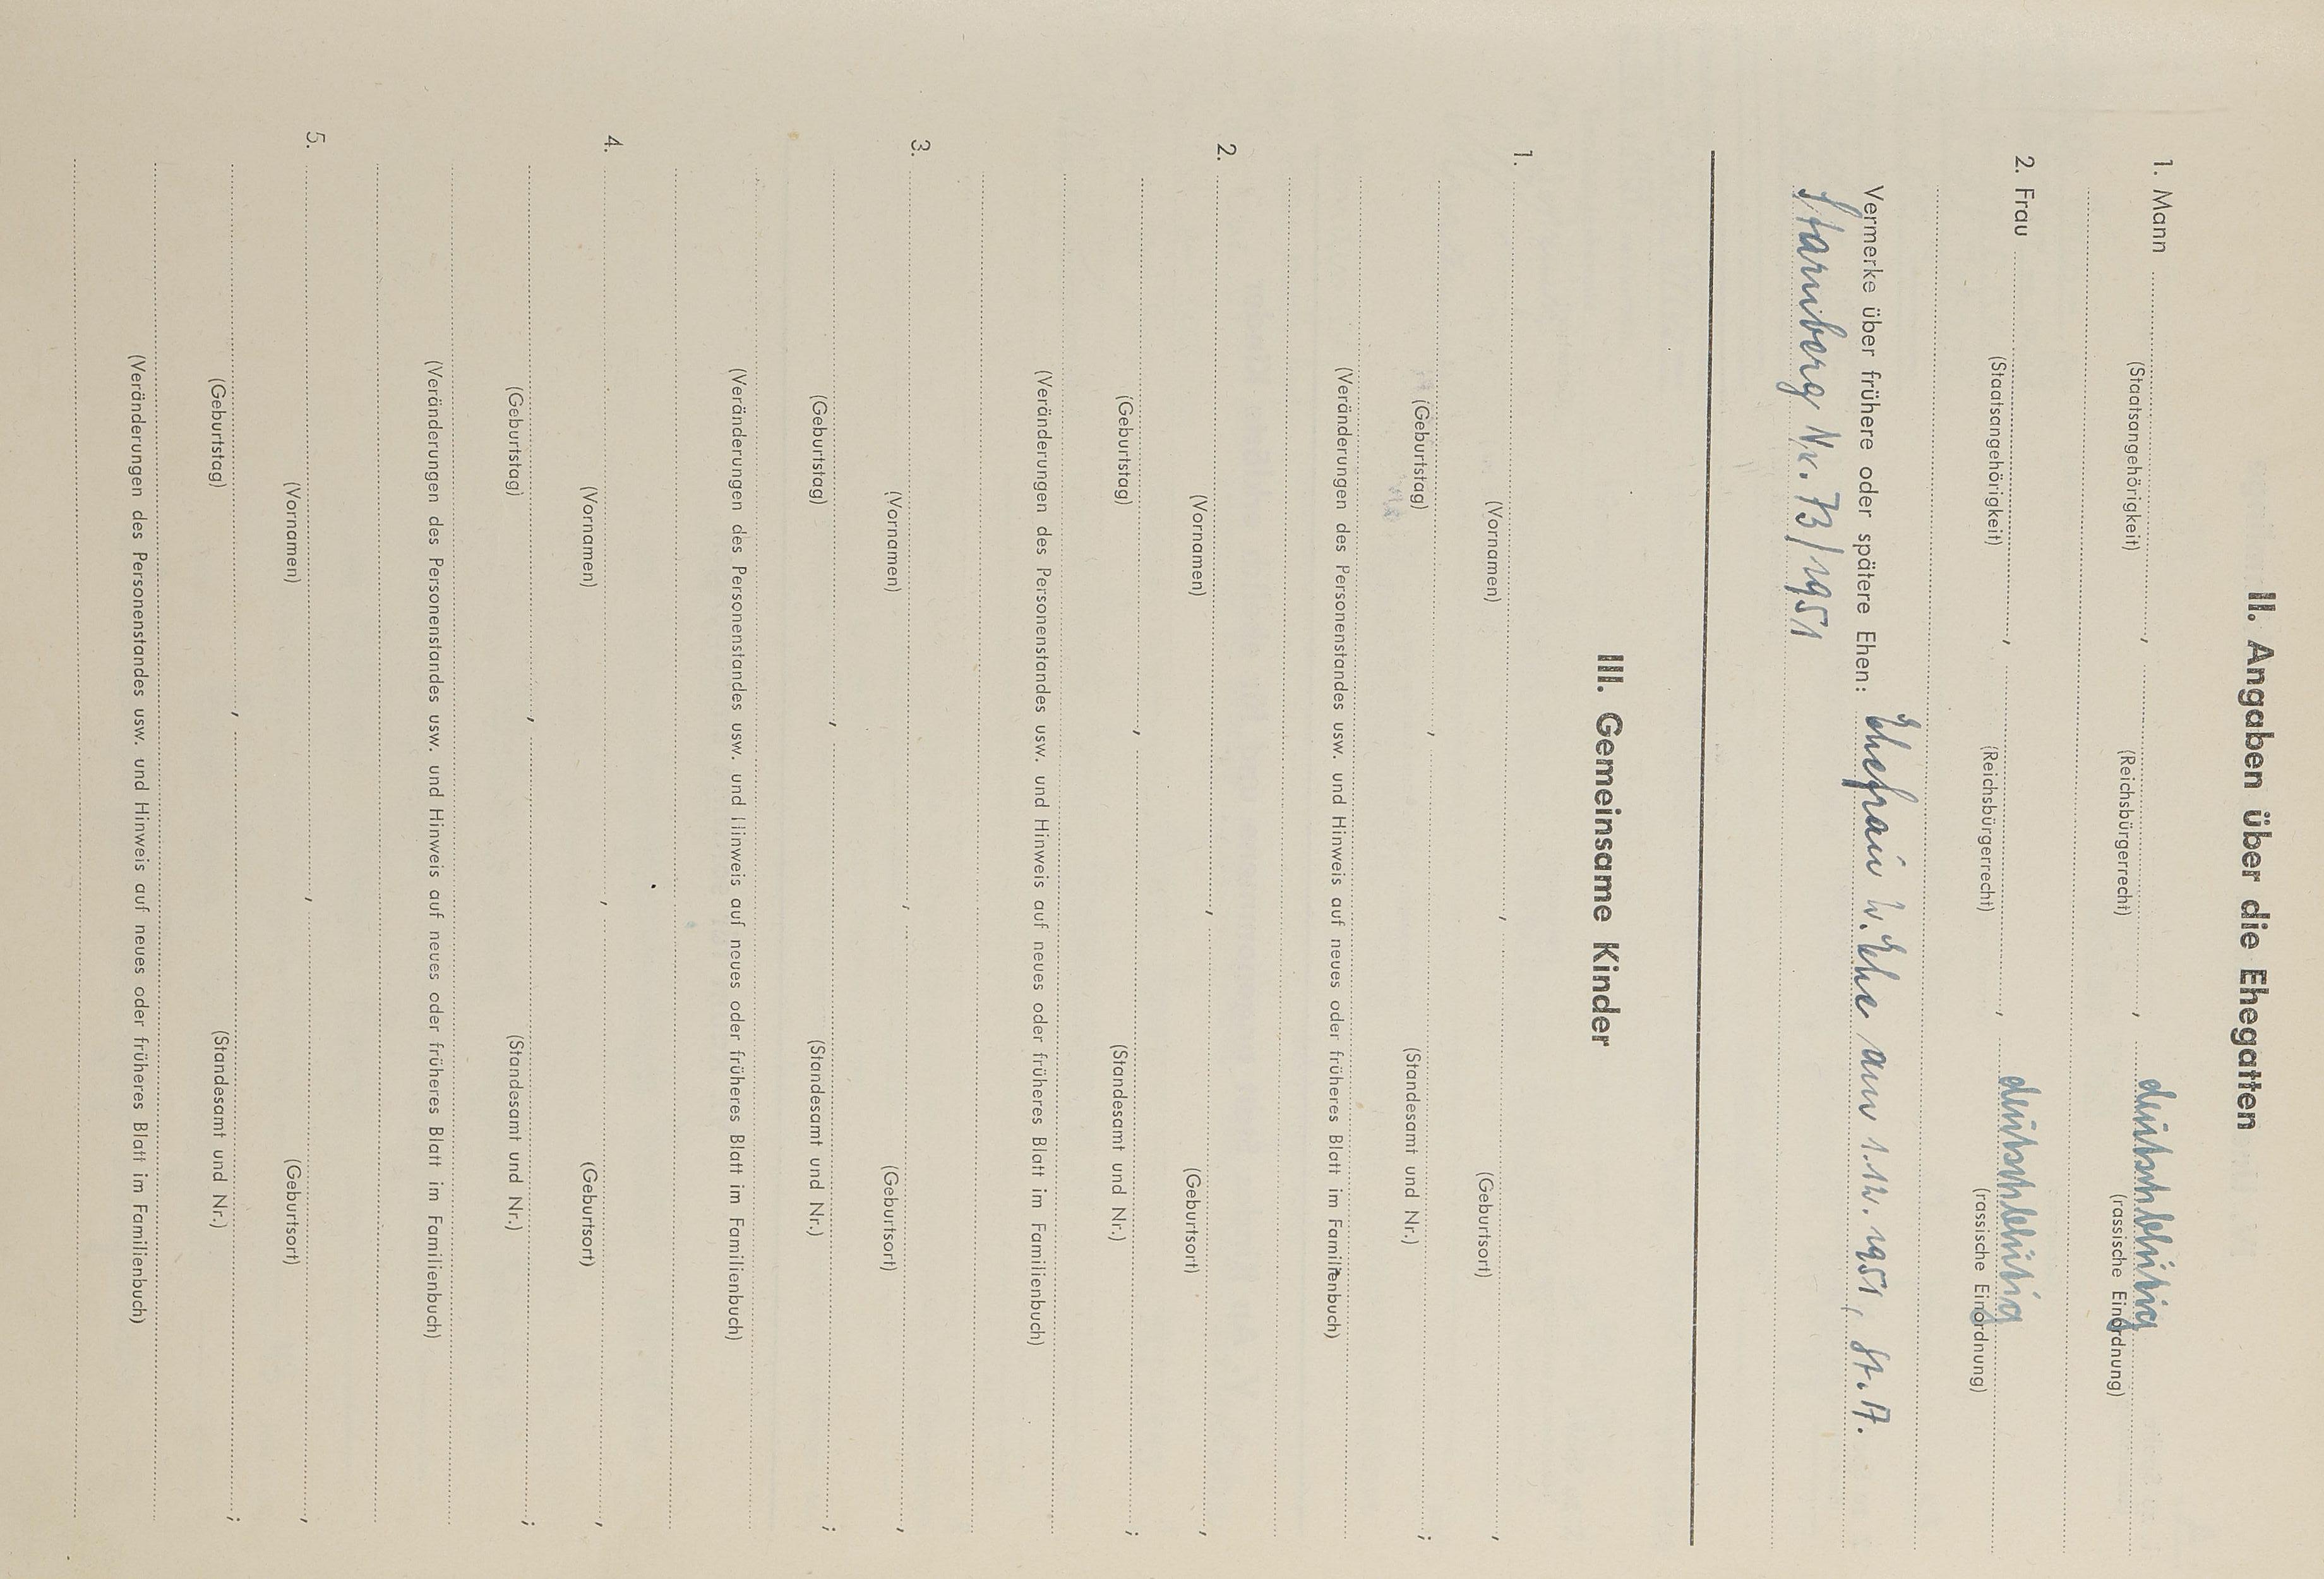 II. Angaben über die Ehegatten
1. Mann , , deutschblütig
(Staatsangehörigkeit) (Reichsbürgerrecht) (rassische Einordnung)
2. Frau , , deutschblütig
(Staatsangehörigkeit) (Reichsbürgerrecht) (rassische Einordnung)
Vermerke über frühere oder spätere Ehen: Ehefrau 2. Ehe am 1.12.1951, St.A.
Starnberg Nr. 73/1951
III. Gemeinsame Kinder
1. , ,
(Vornamen) (Geburtsort)
, ;
(Geburtstag) (Standesamt und Nr.)
(Veränderungen des Personenstandes usw. und Hinweis auf neues oder früheres Blatt im Familienbuch)
2. , ,
(Vornamen) (Geburtsort)
, ;
(Geburtstag) (Standesamt und Nr.)
(Veränderungen des Personenstandes usw. und Hinweis auf neues oder früheres Blatt im Familienbuch)
3. , ,
(Vornamen) (Geburtsort)
, ;
(Geburtstag) (Standesamt und Nr.)
(Veränderungen des Personenstandes usw. und Hinweis auf neues oder früheres Blatt im Familienbuch)
4. , ,
(Vornamen) (Geburtsort)
, ;
(Geburtstag) (Standesamt und Nr.)
(Veränderungen des Personenstandes usw. und Hinweis auf neues oder früheres Blatt im Familienbuch)
5. , ,
(Vornamen) (Geburtsort)
, ;
(Geburtstag) (Standesamt und Nr.)
(Veränderungen des Personenstandes usw. und Hinweis auf neues oder früheres Blatt im Familienbuch)